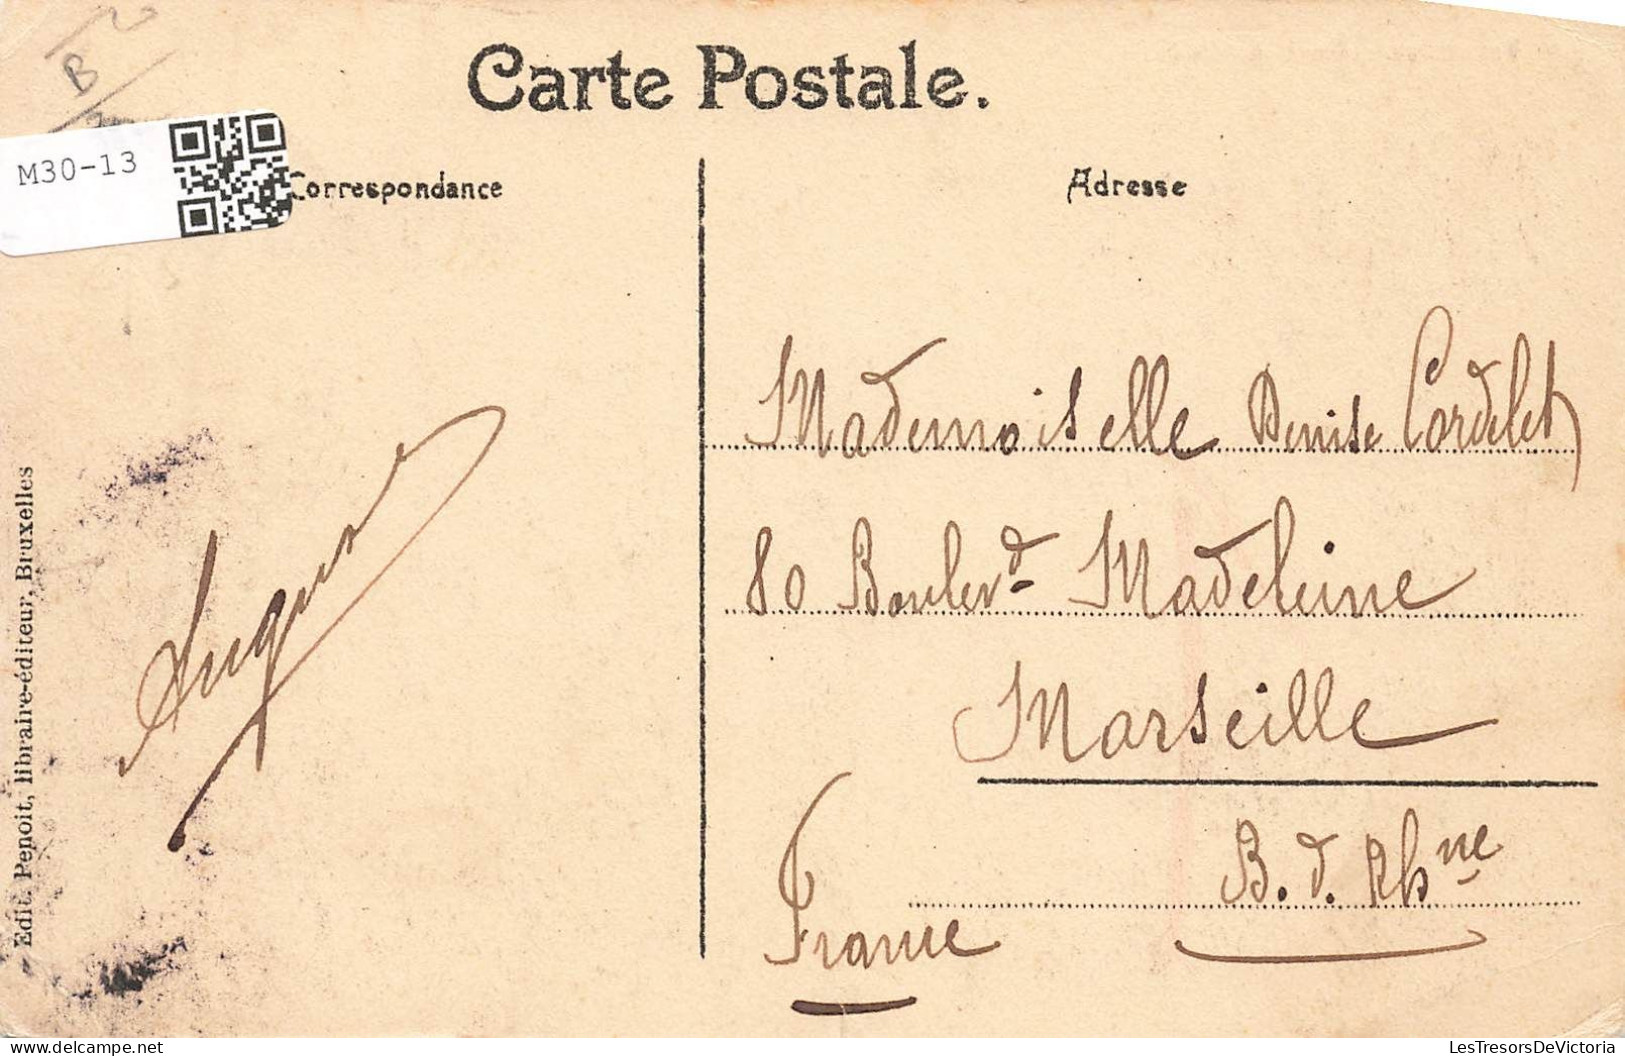 Carte Postale.
B
M30-13
Correspondance
Adresse
Mademoiselle Denise Cordelet
80 Boulevd Madeleine
Marseille
B. d. Rhne
France
Edit. Penoit, libraire-éditeur, Bruxelles
LesTresorsDeVictoria
www.delcampe.net